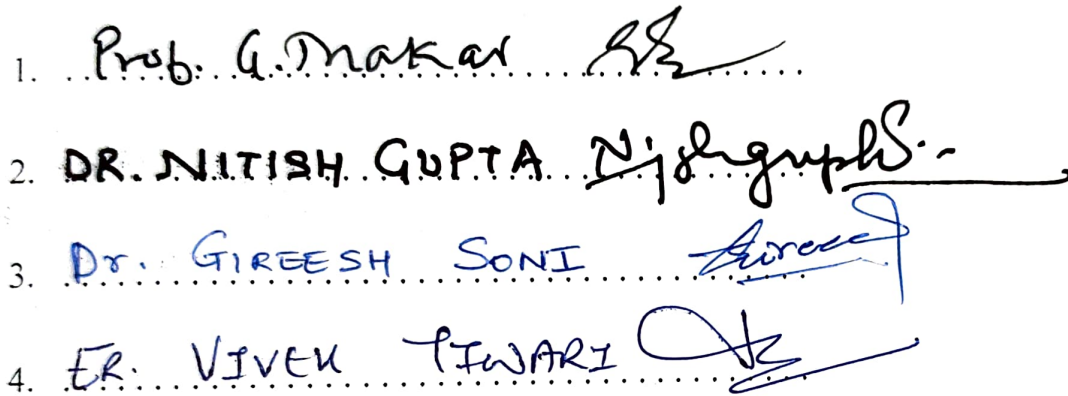 1. Prof. G. Thakar
2. DR. NITISH GUPTA Nitishgupta
3. Dr. GIREESH SONI Gireesh
4. ER. VIVEK TIWARI